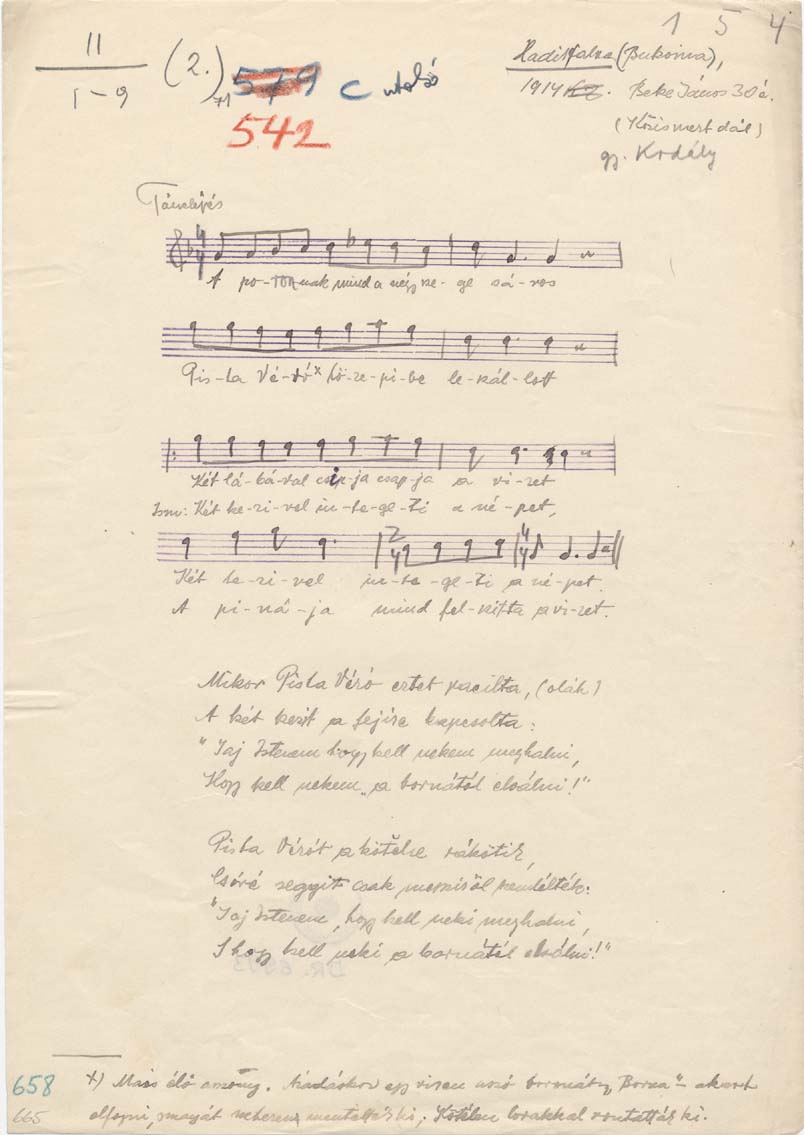 1 5 4
II
I-9
(2.)
579 C utolsó
542
Hadikfalva (Bukovina),
1914. Beke János 30 é.
(Közismert dal)
gy. Kodály
Tánclépés
A po- nak mind a négy sze-ge sá-ros
Pis-ta Vé-ró x kö-ze-pi-be le-kál-lott
Két lá-bá-val csip-ja csap-ja a vi-zet
Ism: Két ke-zi-vel in-te-ge-ti a né-pet,
Két ke-zi-vel in-te-ge-ti a né-pet.
A pi-ná-ja mind fel-itta a vi-zet.
Mikor Pista Véró eztet vacilta, (oláh)
A két kezit a fejire kapcsolta:
"Jaj Istenem hogy kell nekem meghalni,
Hogy kell nekem a bornától elválni!"
Pista Vérót a kötelre rákötik,
Csóré seggit csak messziről nemzlték:
"Jaj Istenem, hogy kell neki meghalni,
S hogy kell neki a bornától elválni!"
DR.
658
665
x) Máis élő asszony. Áradáskor egy vizen uszó boronát, "Borna" - akart
elfogni, magát nehezen mentették ki, Kötélen lovakkal vontatták ki.